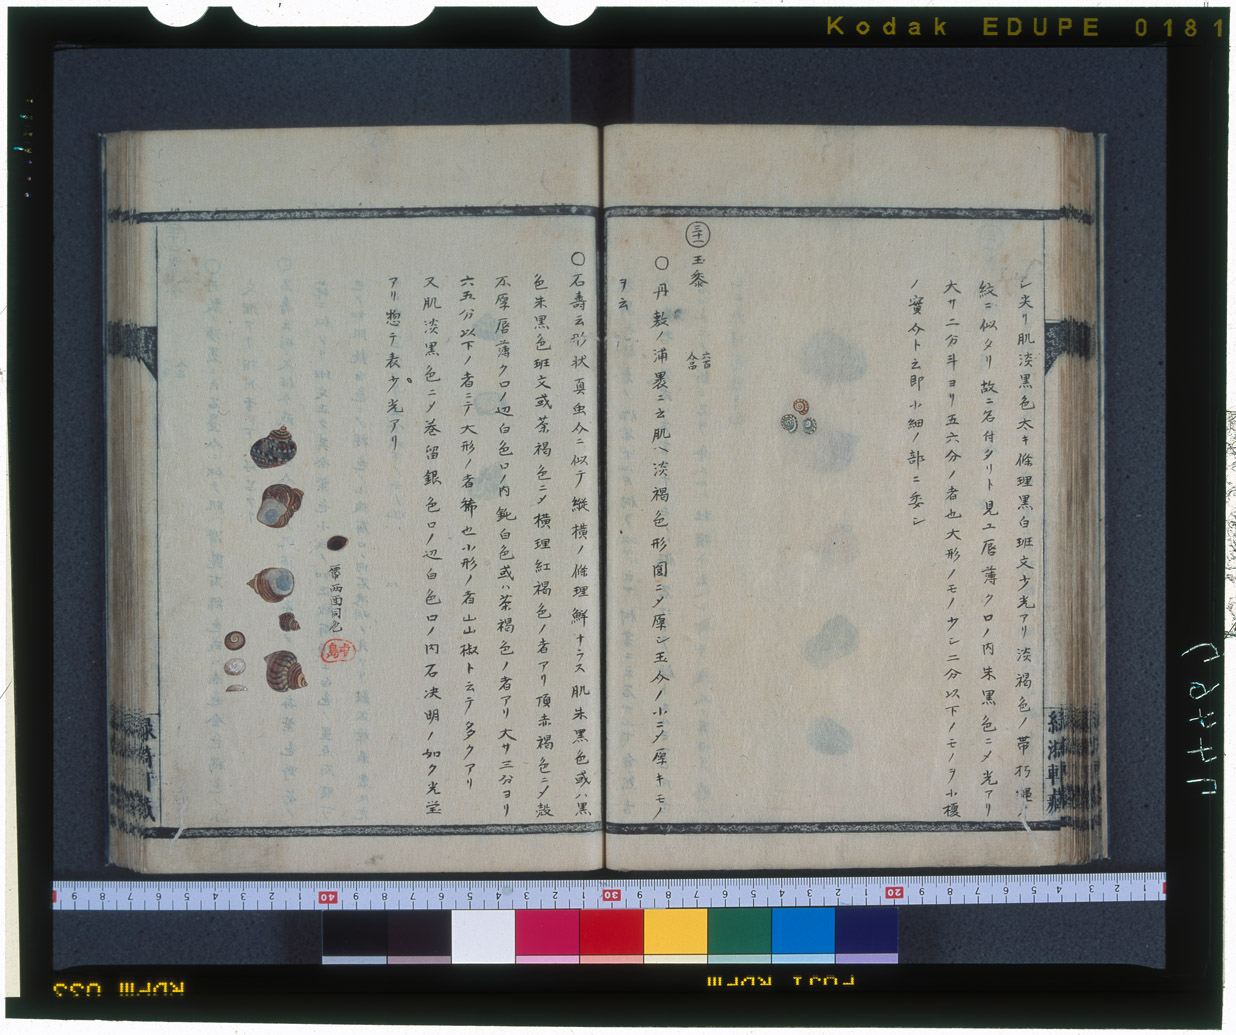 Kodak EDUPE 0181
シ尖リ肌淡黒色太キ條理黒白斑文少光アリ淡褐色ノ帯朽縄ノ
紋ニ似タリ故ニ名付タリト見ユ唇薄ク口ノ内朱黒色ニメ光アリ
大サ二分斗ヨリ五六分ノ者也大形ノモノ少シ二分以下ノモノヲ小榎
ノ實介ト云即小細ノ部ニ委シ
三十一 玉黍
○丹敷ノ浦裏ニ云肌ハ淡褐色形圓ニメ厚シ玉介ノ小ニメ厚キモノ
ヲ云
○石壽云形状真虫介ニ似テ縦横ノ條理鮮ナラス肌朱黒色或ハ黒
色朱黒色斑文或茶褐色ニメ横理紅褐色ノ者アリ頂赤褐色ニメ殻
不厚唇薄ク口ノ辺白色口ノ内鈍白色或ハ茶褐色ノ者アリ大サ三分ヨリ
六五分以下ノ者ニテ大形ノ者稀也小形ノ者山山椒ト云テ多クアリ
又肌淡黒色ニメ巻留銀色口ノ辺白色口ノ内石决明ノ如ク光莹
アリ惣テ表少光アリ
厴両面同色
緑漪軒藏